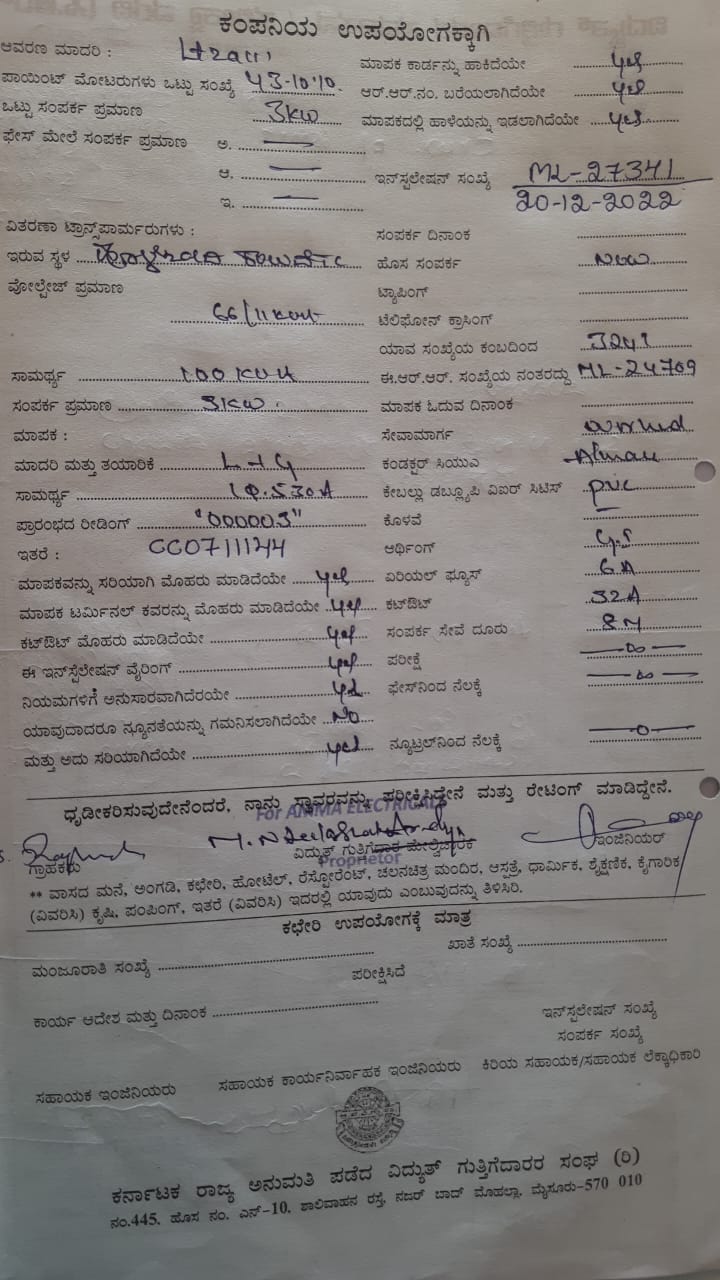 ಕಂಪನಿಯ ಉಪಯೋಗಕ್ಕಾಗಿ
ಆವರಣ ಮಾದರಿ :
ಮಾಪಕ ಕಾರ್ಡನ್ನು ಹಾಕಿದೆಯೇ yes
ಪಾಯಿಂಟ್ ಮೋಟರುಗಳು ಒಟ್ಟು ಸಂಖ್ಯೆ
ಆರ್.ಆರ್.ನಂ. ಬರೆಯಲಾಗಿದೆಯೇ yes
ಒಟ್ಟು ಸಂಪರ್ಕ ಪ್ರಮಾಣ 3KW
ಮಾಪಕದಲ್ಲಿ ಹಾಳೆಯನ್ನು ಇಡಲಾಗಿದೆಯೇ yes
ಫೇಸ್ ಮೇಲೆ ಸಂಪರ್ಕ ಪ್ರಮಾಣ ಅ.
ಆ.
ಇನ್‌ಸ್ಟಲೇಷನ್ ಸಂಖ್ಯೆ ML-27341
ಇ.
20-12-2022
ವಿತರಣಾ ಟ್ರಾನ್ಸ್‌ಪಾರ್ಮರುಗಳು :
ಸಂಪರ್ಕ ದಿನಾಂಕ
ಇರುವ ಸ್ಥಳ
ಹೊಸ ಸಂಪರ್ಕ New
ವೋಲ್ಟೇಜ್ ಪ್ರಮಾಣ
ಟ್ಯಾಪಿಂಗ್
66/11
ಟೆಲಿಫೋನ್ ಕ್ರಾಸಿಂಗ್
ಯಾವ ಸಂಖ್ಯೆಯ ಕಂಬದಿಂದ
ಸಾಮರ್ಥ್ಯ 100 KVA
ಈ.ಆರ್.ಆರ್. ಸಂಖ್ಯೆಯ ನಂತರದ್ದು ML-24769
ಸಂಪರ್ಕ ಪ್ರಮಾಣ 3KW
ಮಾಪಕ ಓದುವ ದಿನಾಂಕ
ಮಾಪಕ :
ಸೇವಾಮಾರ್ಗ
ಮಾದರಿ ಮತ್ತು ತಯಾರಿಕೆ L+G
ಕಂಡಕ್ಟರ್ ಸಿಯುಎ
ಸಾಮರ್ಥ್ಯ
ಕೇಬಲ್ಲು ಡಬ್ಲ್ಯೂಪಿ ವಿಐರ್ ಸಿಟಿಸ್ PVC
ಪ್ರಾರಂಭದ ರೀಡಿಂಗ್ "000003"
ಕೊಳವೆ
ಇತರೆ : CC0711144
ಆರ್ಥಿಂಗ್
ಮಾಪಕವನ್ನು ಸರಿಯಾಗಿ ಮೊಹರು ಮಾಡಿದೆಯೇ yes
ಏರಿಯಲ್ ಫ್ಯೂಸ್ 6A
ಮಾಪಕ ಟರ್ಮಿನಲ್ ಕವರನ್ನು ಮೊಹರು ಮಾಡಿದೆಯೇ yes
ಕಟ್‌ಔಟ್ 32A
ಕಟ್‌ಔಟ್ ಮೊಹರು ಮಾಡಿದೆಯೇ yes
ಸಂಪರ್ಕ ಸೇವೆ ದೂರು 8M
ಈ ಇನ್‌ಸ್ಟೆಲೇಷನ್ ವೈರಿಂಗ್ yes
ಪರೀಕ್ಷೆ
ನಿಯಮಗಳಿಗೆ ಅನುಸಾರವಾಗಿದೆರಯೇ yes
ಫೇಸ್‌ನಿಂದ ನೆಲಕ್ಕೆ
ಯಾವುದಾದರೂ ನ್ಯೂನತೆಯನ್ನು ಗಮನಿಸಲಾಗಿದೆಯೇ No
ಮತ್ತು ಅದು ಸರಿಯಾಗಿದೆಯೇ yes
ನ್ಯೂಟ್ರಲ್‌ನಿಂದ ನೆಲಕ್ಕೆ
ಧೃಡೀಕರಿಸುವುದೇನೆಂದರೆ, ನಾನು ಸ್ಥಾವರವನ್ನು ಪರೀಕ್ಷಿಸಿದ್ದೇನೆ ಮತ್ತು ರೇಟಿಂಗ್ ಮಾಡಿದ್ದೇನೆ.
For AMMA ELECTRICAL
ಗ್ರಾಹಕರು
ವಿದ್ಯುತ್ ಗುತ್ತಿಗೆದಾರ ಮೇಲ್ವಿಚಾರಕ
ಇಂಜಿನಿಯರ್
Proprietor
** ವಾಸದ ಮನೆ, ಅಂಗಡಿ, ಕಛೇರಿ, ಹೋಟೆಲ್, ರೆಸ್ಟೋರೆಂಟ್, ಚಲನಚಿತ್ರ ಮಂದಿರ, ಆಸ್ಪತ್ರೆ, ಧಾರ್ಮಿಕ, ಶೈಕ್ಷಣಿಕ, ಕೈಗಾರಿಕ
(ವಿವರಿಸಿ) ಕೃಷಿ, ಪಂಪಿಂಗ್, ಇತರೆ (ವಿವರಿಸಿ) ಇದರಲ್ಲಿ ಯಾವುದು ಎಂಬುವುದನ್ನು ತಿಳಿಸಿರಿ.
ಕಛೇರಿ ಉಪಯೋಗಕ್ಕೆ ಮಾತ್ರ
ಮಂಜೂರಾತಿ ಸಂಖ್ಯೆ
ಖಾತೆ ಸಂಖ್ಯೆ
ಪರೀಕ್ಷಿಸಿದೆ
ಕಾರ್ಯ ಆದೇಶ ಮತ್ತು ದಿನಾಂಕ
ಇನ್‌ಸ್ಟಲೇಷನ್ ಸಂಖ್ಯೆ
ಸಂಪರ್ಕ ಸಂಖ್ಯೆ
ಸಹಾಯಕ ಇಂಜಿನಿಯರು
ಸಹಾಯಕ ಕಾರ್ಯನಿರ್ವಾಹಕ ಇಂಜಿನಿಯರು
ಕಿರಿಯ ಸಹಾಯಕ/ಸಹಾಯಕ ಲೆಕ್ಕಾಧಿಕಾರಿ
ಕರ್ನಾಟಕ ರಾಜ್ಯ ಅನುಮತಿ ಪಡೆದ ವಿದ್ಯುತ್ ಗುತ್ತಿಗೆದಾರರ ಸಂಘ (ರಿ)
ನಂ.445, ಹೊಸ ನಂ. ಎನ್-10, ಶಾಲಿವಾಹನ ರಸ್ತೆ, ನಜರ್ ಬಾದ್ ಮೊಹಲ್ಲಾ, ಮೈಸೂರು-570 010